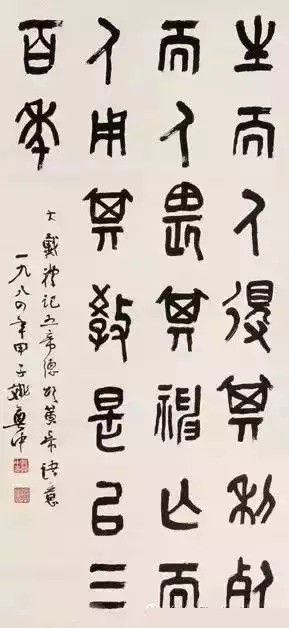 生而人得其利死
而人畏其神亡而
人用其教是㠯三
百年
大戴禮記五帝德頌黄帝語意
一九八四年甲子姚奠中